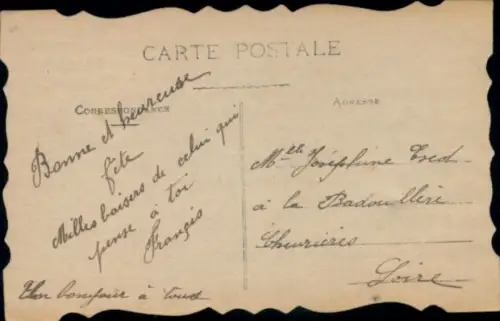 CARTE POSTALE
CORRESPONDANCE
ADRESSE
Bonne et heureuse
fête
Milles baisers de celui qui
pense à toi
Françis
Un bonjour à tous
Melle Joséphine
à la Badouillère
Chevrières
Loire